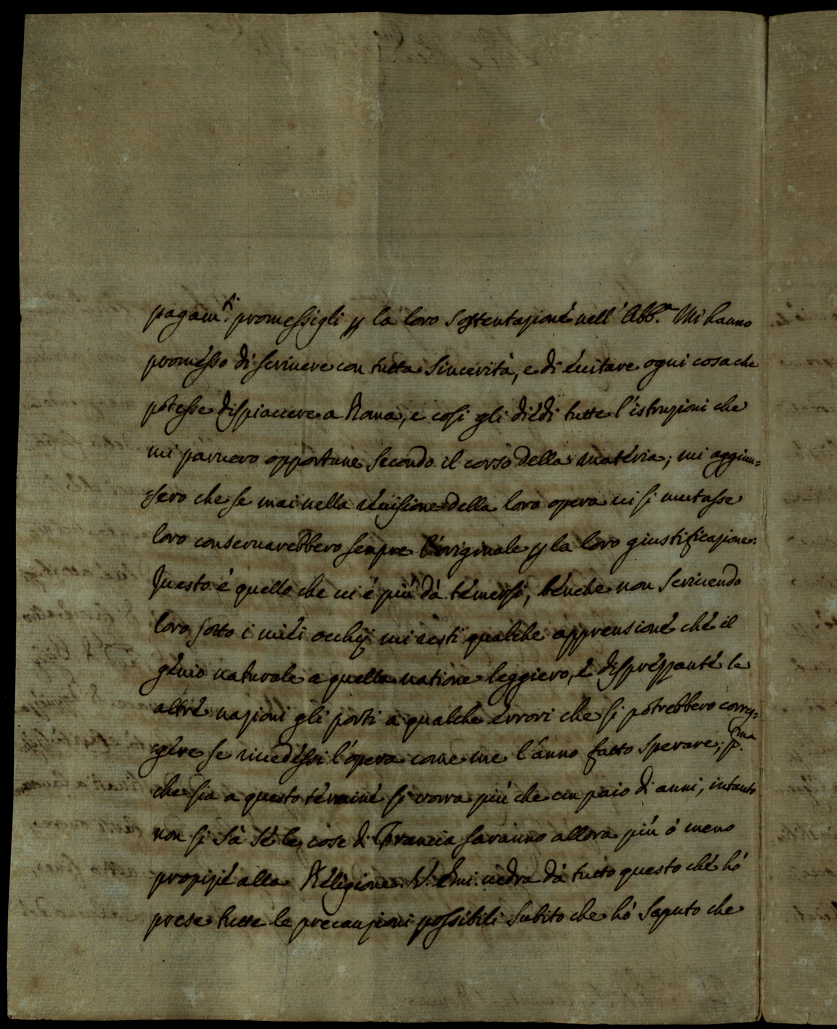 pagam.ti promessigli p la loro sostentazione nell' Abb.a Mi hanno
promesso di scrivere con tutta sincerità, e di evitare ogni cosa che
potesse dispiacere a Roma, e così gli diedi tutte l'istruzioni che
mi parvero opportune secondo il corso della materia; mi aggiun=
=sero che se mai nella revisione della loro opera vi si mutasse
loro conservarebbero sempre l'originale p la loro giustificazione.
Questo è quello che vi è più dà temersi, benche non scrivendo
loro sotto i miei occhij mi resti qualche apprensione che il
genio naturale a quella natione leggiero, e disprezzante le
altre nazioni gli porti a qualche errori che si potrebbero correg=
gere se rivedessi l'opera come me l'anno fatto sperare; p.ma
che sia a questo termine si vorra più che un paio di anni, intanto
non si sà se le cose di Francia saranno allora più ò meno
propizie alla Religione. V. Emi. vedra dà tutto questo che hò
prese tutte le precauzioni possibili subito che hò saputo che